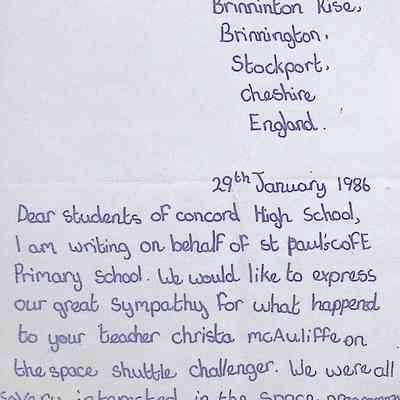 Brinninton Rise,
Brinnington,
Stockport,
cheshire
England.
29th January 1986
Dear students of concord High School,
I am writing on behalf of st paul's cofE
Primary school. We would like to express
our great sympathy for what happend
to your teacher christa mcAuliffe on
the space shuttle challenger. We were all
so very interested in the space programme